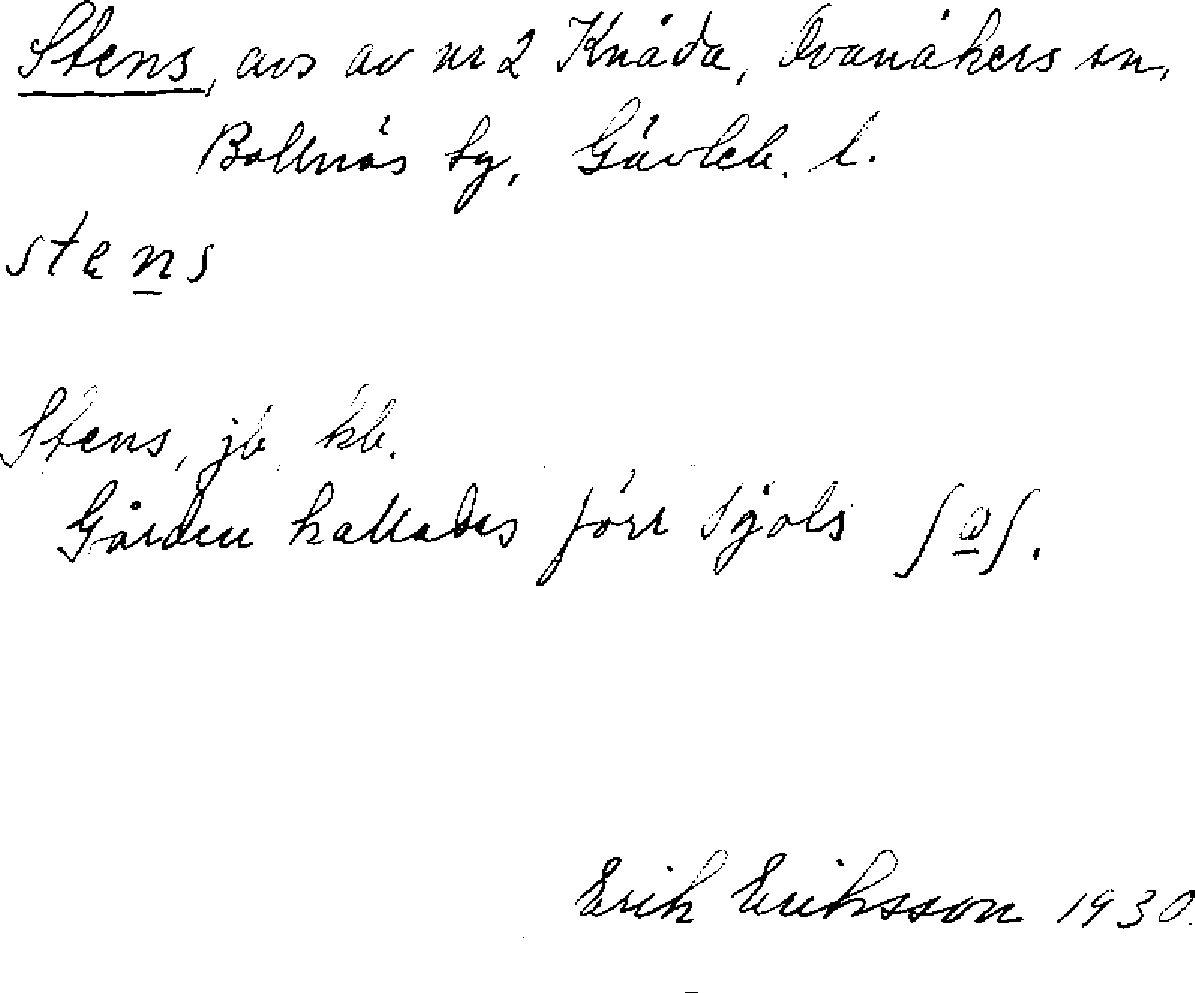 Stens, avs av nr 2 Knåda, Ovanåkers sn,
Bollnäs tg, Gävleb. l.
stens
Stens, jb kb.
Gården kallades förr Sjöls
Erik Eriksson 1930.